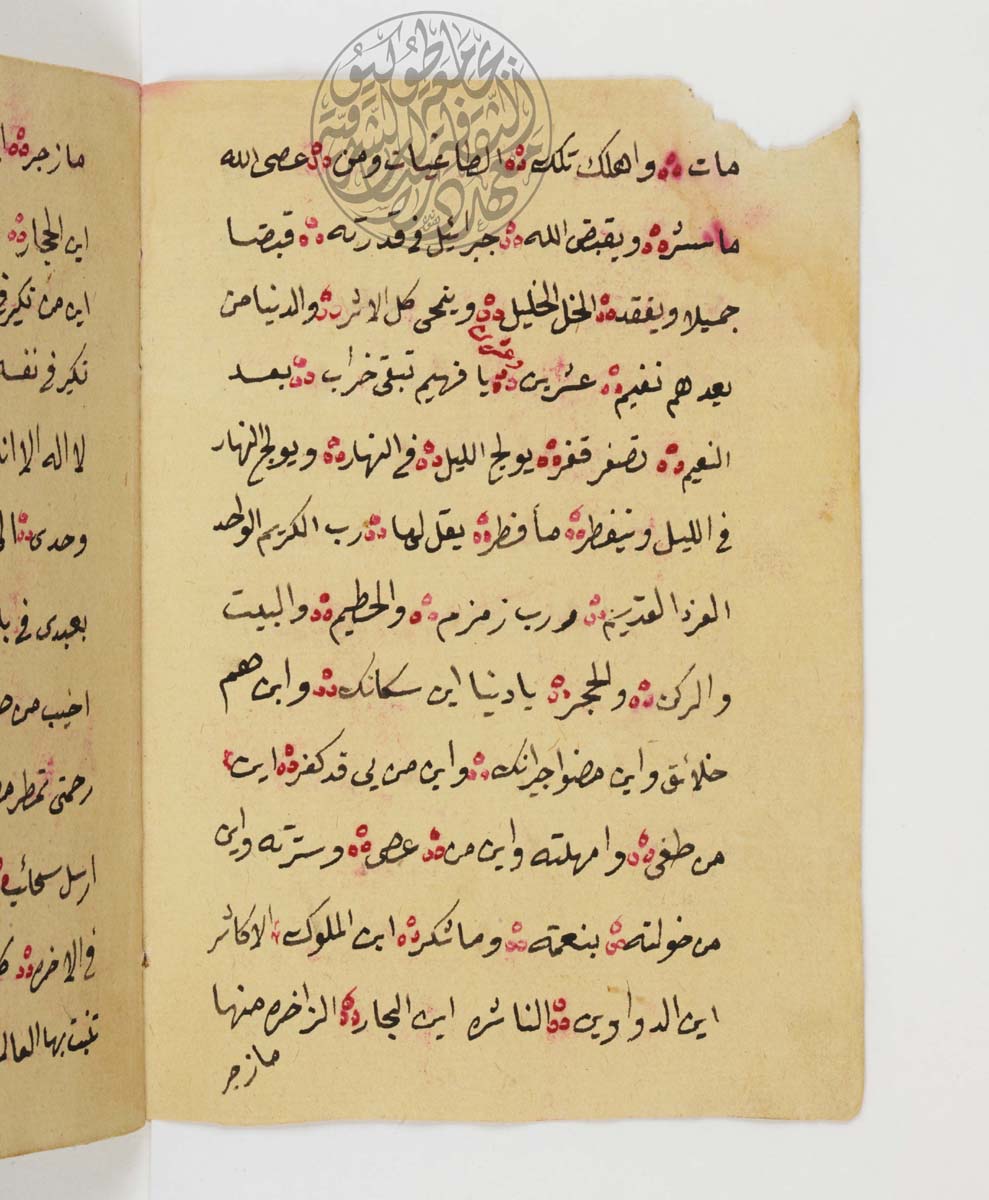 مات ؞ واهلك تلك ؞ الطاغيات ومن ؞ عصى الله
ماستره ؞ ويقبض الله ؞ جبرائيل في قدرته ؞ قبضا
جميلا ويفقد ؞ الخل الخليل ؞ وينمحى كل الاثر ؞ والدنيا من
بعدهم تقيم ؞ عشرين ؞ يا فهيم تبقى خراب ؞ بعد
النعيم ؞ تصفر قفر ؞ يولج الليل ؞ في النهار ؞ ويولج النهار
في الليل وينفطر ؞ ما فطر ؞ يقل لها ؞ رب الكريم الواحد
الفرد القديم ؞ ورب زمزم ؞ والحطيم ؞ والبيت
والركن ؞ والحجر ؞ يا دنيا اين سكانك ؞ واين هم
خلائق واين مضوا جيرانك ؞ واين من بي قد كفر ؞ اين
من طغى ؞ وامهلته واين من ؞ عصى ؞ وسترته واين
من خولته ؞ بنعمته ؞ وما شكر ؞ اين الملوك الاكاثر
اين الدواوين ؞ الناشره اين البحار ؞ الزاخره منها
مازجر
مازجر ؞
اين الحجار ؞
اين من تكبر
تكبر في نفسه
لا اله الا انا
وحدى ؞
بعبدى في
اخيب من
رحمتى تمطر
ارسل سحائب
في الاخره ؞
تنبت بها العالم